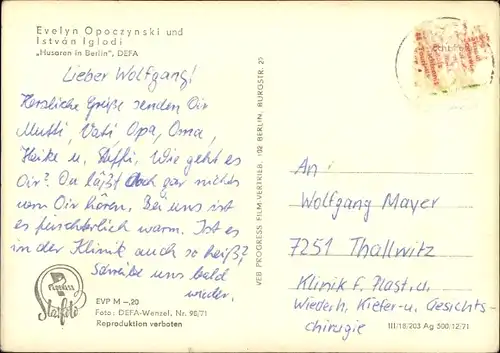 Evelyn Opoczynski und
István Iglodi
„Husaren in Berlin", DEFA
Lieber Wolfgang!
Herzliche Grüße senden Dir
Mutti, Vati, Opa, Oma,
Heike u. Steffi. Wie geht es
Dir? Du läßt doch gar nichts
von Dir hören. Bei uns ist
es fürchterlich warm. Ist es
in der Klinik auch so heiß?
Schreibe uns bald
wieder.
progress
Starfoto
EVP M –,20
Foto: DEFA-Wenzel, Nr. 98/71
Reproduktion verboten
VEB PROGRESS FILM-VERTRIEB, 102 BERLIN, BURGSTR. 27
An:
Wolfgang Mayer
7251 Thallwitz
Klinik f. Plast. u.
Wiederh. Kiefer- u. Gesichts-
chirurgie
III/18/203 Ag 500/12/71